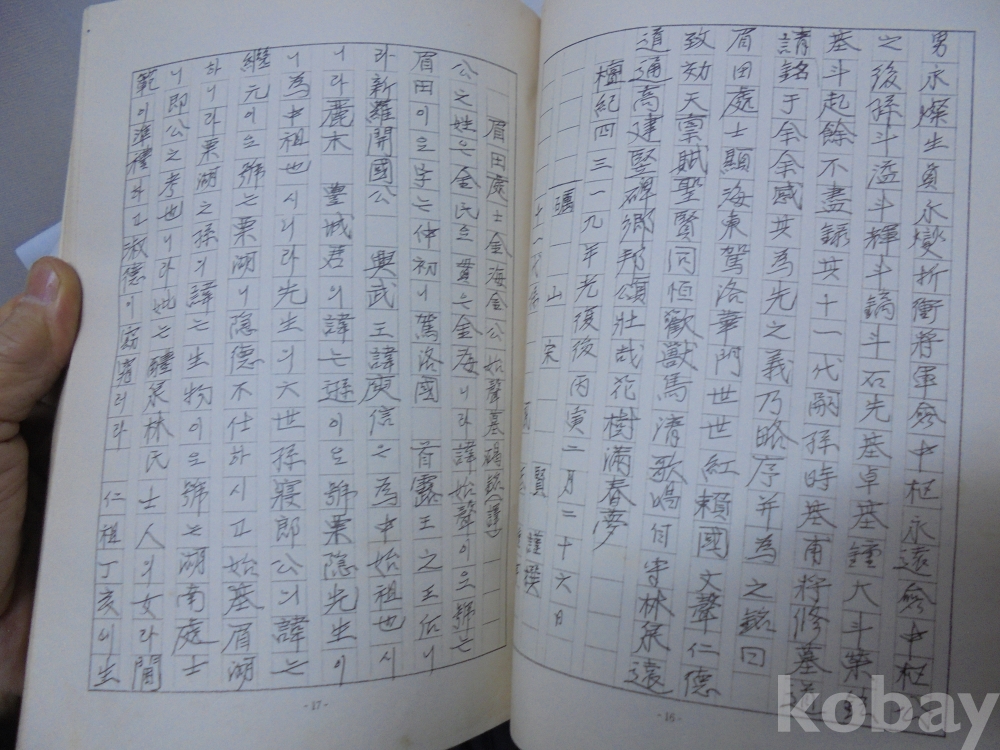 男永燦生負永燮折衝將軍僉中樞永遠僉中樞
之後孫斗溢斗輝斗鎬斗石先基卓基鍾大斗
基斗起餘不盡錄共十一代嗣孫時基甫將修墓道
請銘于余余感其為先之義乃略序并為之銘曰
眉田處士顯海東駕洛華門世世紅賴國文聲仁德
致効天稟賦聖賢同恒歡獸馬清歌鳴何守林泉遠
道通高建堅碑鄉邦頌壯哉花樹滿春夢
檀紀四三一九年光復後丙寅二月二十六日
山 宋 賢 謹撰
- 16 -
眉田處士金海金公始聲墓碣銘(譯)
公之姓은金氏요貫은金海니라諱始聲이요號는
眉田이요字는仲初니駕洛國 首露王之王后니
라新羅開國公 興武王諱庾信은為中始祖也시
니라麗末 豊城君의諱는遜이요號栗隱先生이
니為中祖也시니라先生의六世孫寢郎公의諱는
繼元이요號는栗湖니隱德不仕하시고始墓眉湖
하니라栗湖之孫의諱는生物이요號는湖南處士
니即公之考也니라妣는醴泉林氏士人의女라閨
範이準禮하고淑德이 러라 仁祖丁亥에生
- 17 -
kobay